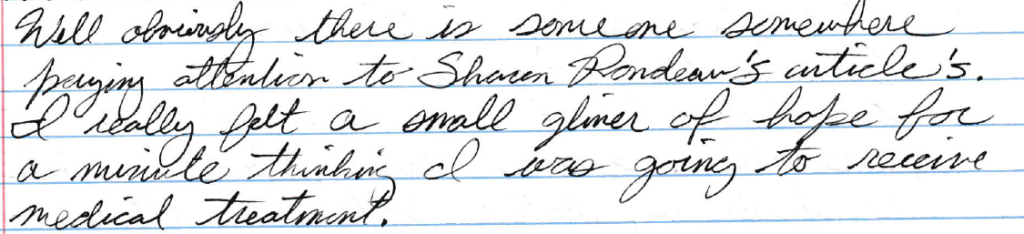 Well obviously there is someone somewhere
paying attention to Sharon Rondeau's article's.
I really felt a small glimer of hope for
a minute thinking I was going to receive
medical treatment.